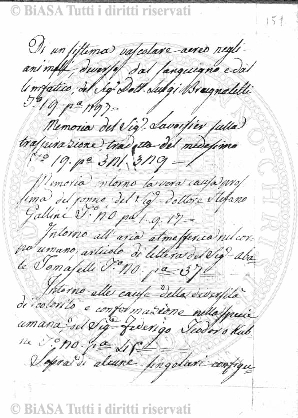 © BiASA Tutti i diritti riservati
151
Di un sistema vascolare-aereo negli
animali, diverso dal sanguigno e dal
linfatico, del Sig. Dott. Luigi Brugnatelli
T.º 19. pª 197.
Memoria del Sig. Lavoisier sulla
traspirazione, tradotta dal medesimo
T.º 19. pª
Memoria intorno la vera causa pros
sima del sonno del Sig. dottore Stefano
Gallini T.º pª 1. 9. 17.
Intorno all'aria atmosferica nel cor
po umano, articolo di lettera del Sig. Aba
te Tomaselli T.º pª 37
Intorno alle cause della diversità
di colorito e conformazione nella specie
umana del Sig. Federigo Teodoro
T.º pª
Sopra di alcune singolari configu
© BiASA Tutti i diritti riservati